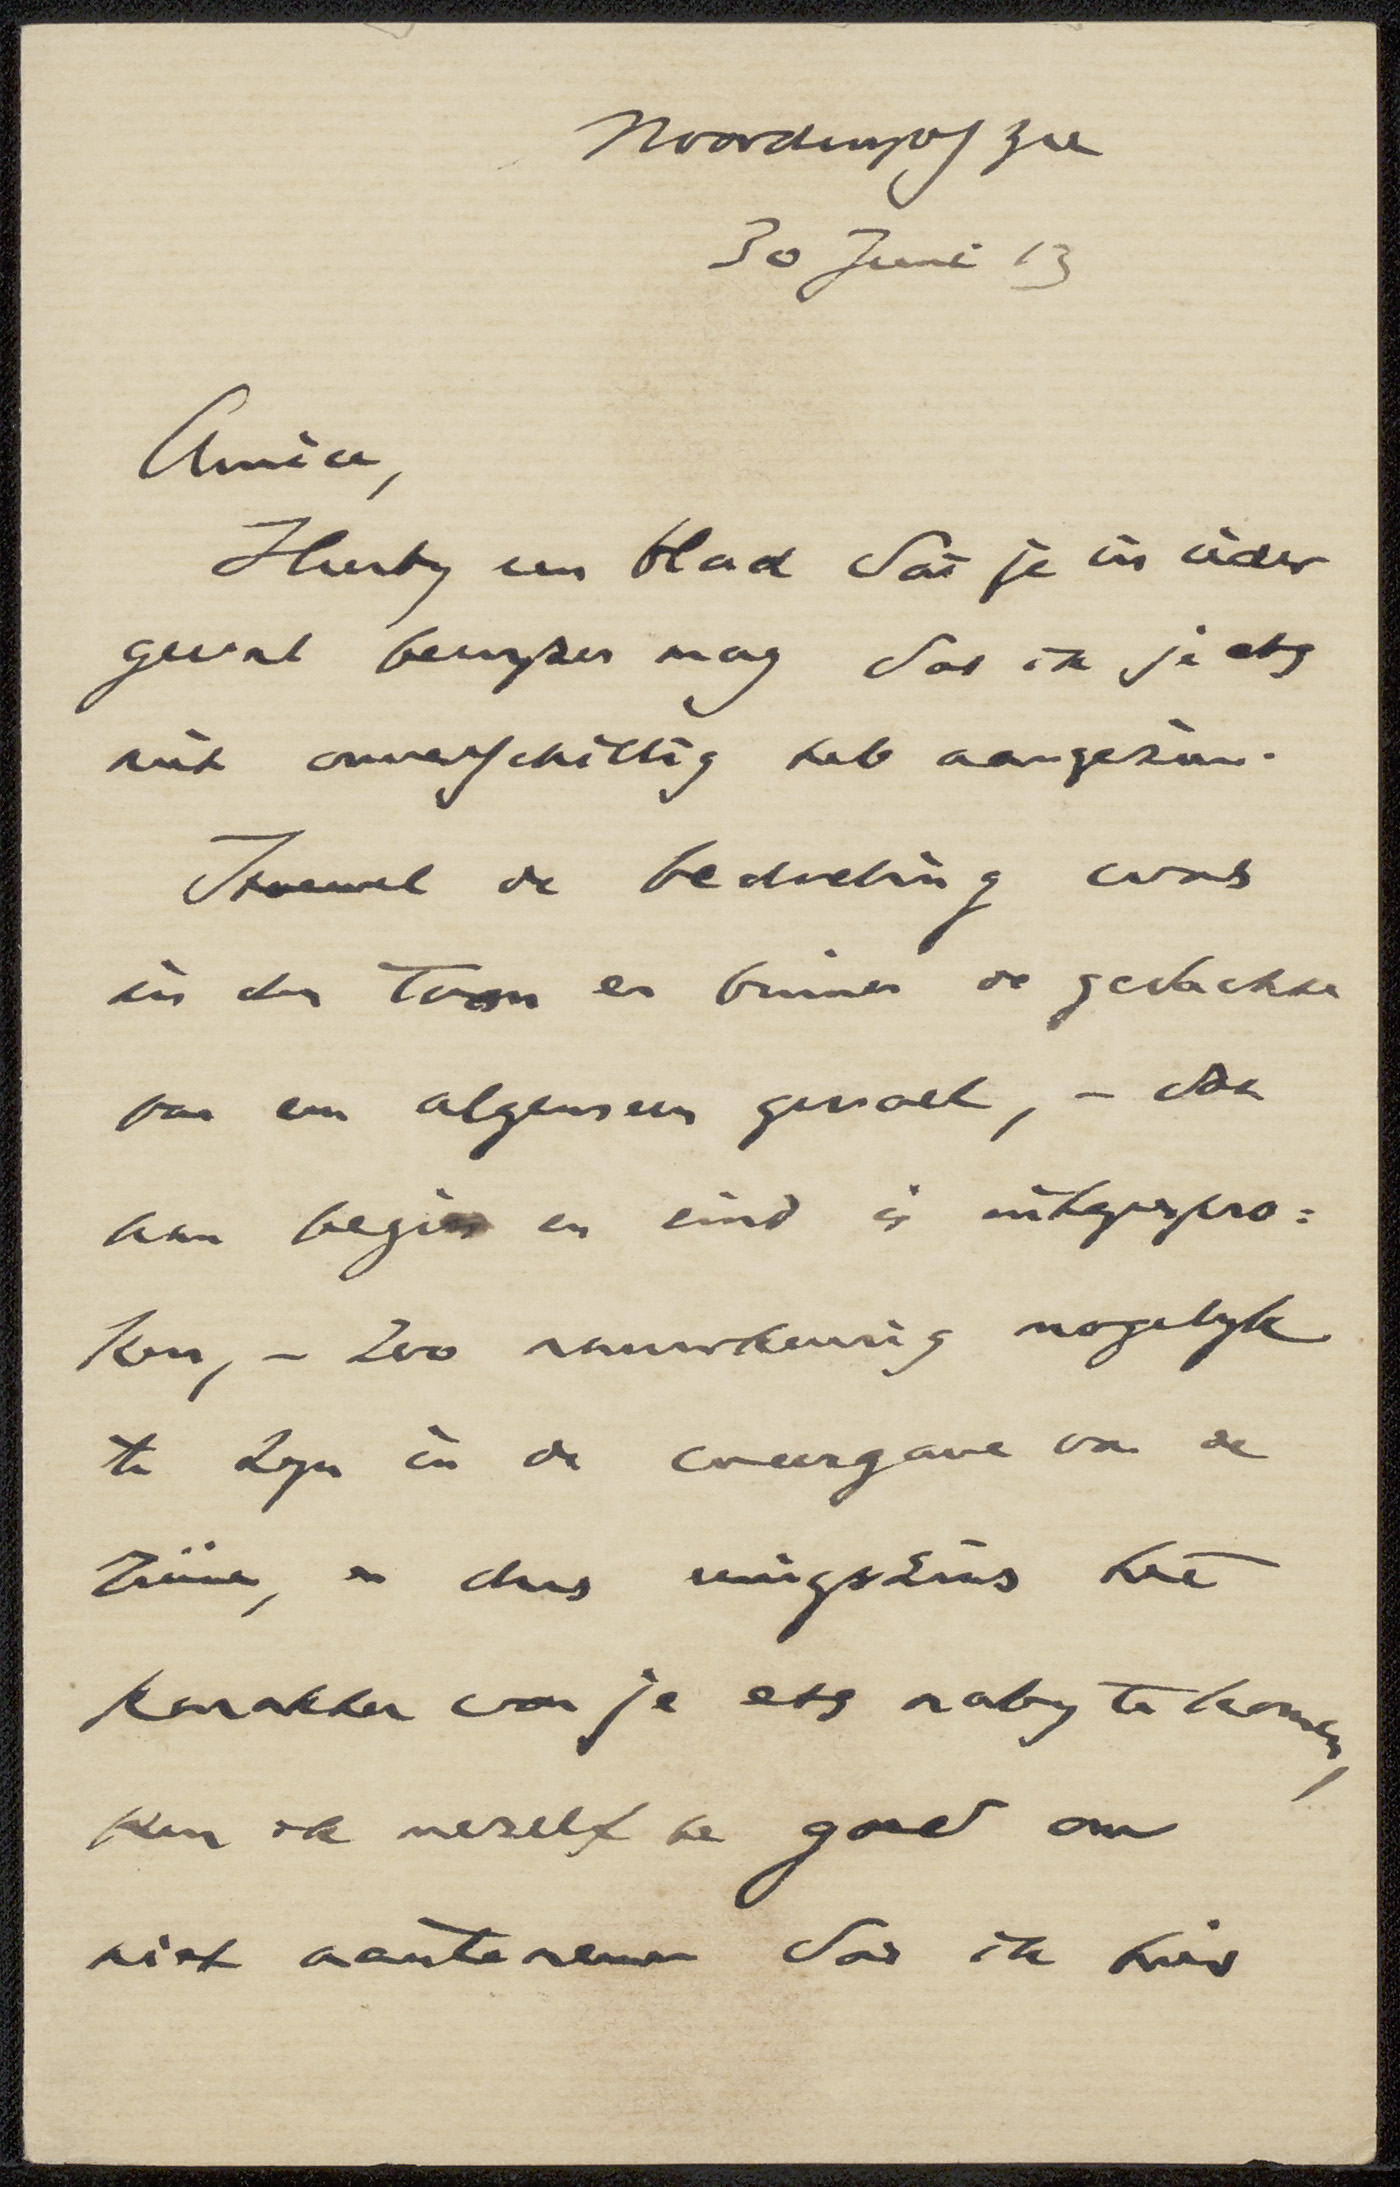 Noordwijk a/ Zee
30 Juni 13
Amice,
Hierby een blad dat je in ieder
geval bewyzen mag dat ik je ets
niet onverschillig heb aangezien.
Hoewel de bedoeling was
in den toon en binnen de gedachte
van een algemeen geval, – dat
aan begin en eind is uitgespro=
ken, – zoo nauwkeurig mogelyk
te zyn in de weergave van de
en dus eenigszins het
karakter van je ets naby te komen,
ken ik mezelf te goed om
niet aantenemen dat ik hier